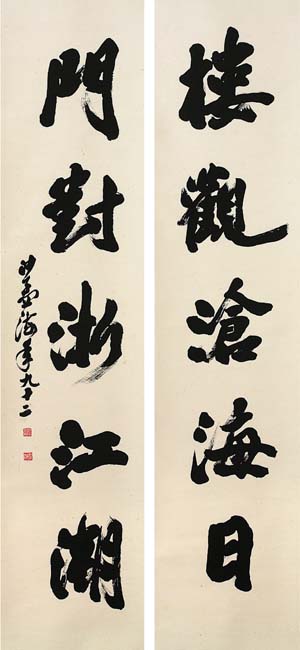 樓觀滄海日
門對浙江潮
沙孟海年九十二